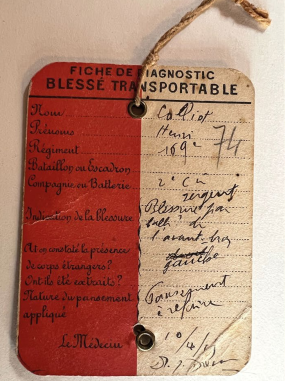 FICHE DE DIAGNOSTIC
BLESSÉ TRANSPORTABLE
Nom Colliot
Prénoms Henri
Régiment 169e 74
Bataillon ou Escadron
Compagnie ou Batterie 2e Cie
sergent
Indication de la blessure Blessure par
balle de
l'avant-bras
A-t-on constaté la présence
de corps étrangers? gauche
Ont-ils été extraits?
Nature du pansement Pansement
appliqué à refaire
Le Médecin